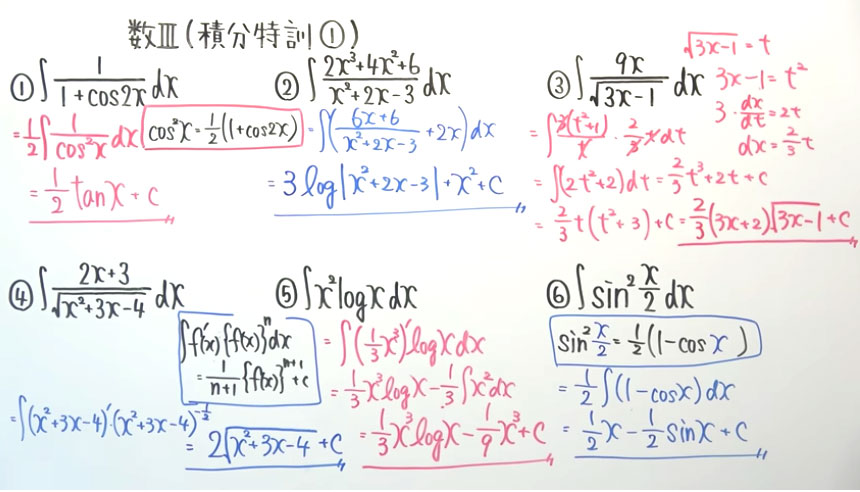 数Ⅲ(積分特訓①)
① ∫ 1/(1+cos2x) dx
= 1/2 ∫ 1/cos²x dx
cos²x = 1/2 (1+cos2x)
= 1/2 tanx + C
② ∫ (2x³+4x²+6)/(x²+2x-3) dx
= ∫ ( (6x+6)/(x²+2x-3) + 2x ) dx
= 3 log|x²+2x-3| + x² + C
③ ∫ 9x/√(3x-1) dx
√(3x-1) = t
3x-1 = t²
3・dx/dt = 2t
dx = 2/3 t
= ∫ 3(t²+1)/t ・ 2/3 t dt
= ∫ (2t²+2) dt = 2/3 t³ + 2t + C
= 2/3 t (t²+3) + C = 2/3 (3x+2)√(3x-1) + C
④ ∫ (2x+3)/√(x²+3x-4) dx
∫ f'(x) {f(x)}ⁿ dx
= 1/(n+1) {f(x)}ⁿ⁺¹ + C
= ∫ (x²+3x-4)'・(x²+3x-4)^(-1/2)
= 2√(x²+3x-4) + C
⑤ ∫ x² logx dx
= ∫ (1/3 x³)' logx dx
= 1/3 x³ logx - 1/3 ∫ x² dx
= 1/3 x³ logx - 1/9 x³ + C
⑥ ∫ sin² x/2 dx
sin² x/2 = 1/2 (1-cos x )
= 1/2 ∫ (1-cosx) dx
= 1/2 x - 1/2 sinx + C